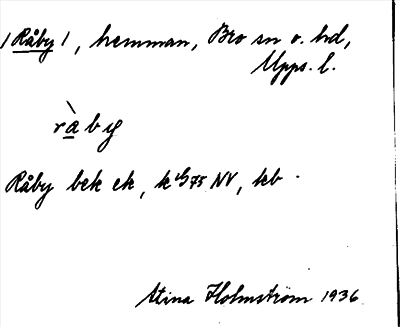 /Råby/, hemman, Bro sn o. hd,
Upps. l.
ràby
Råby bek ek, k 1/5 75 NV, kb.
Stina Holmström 1936